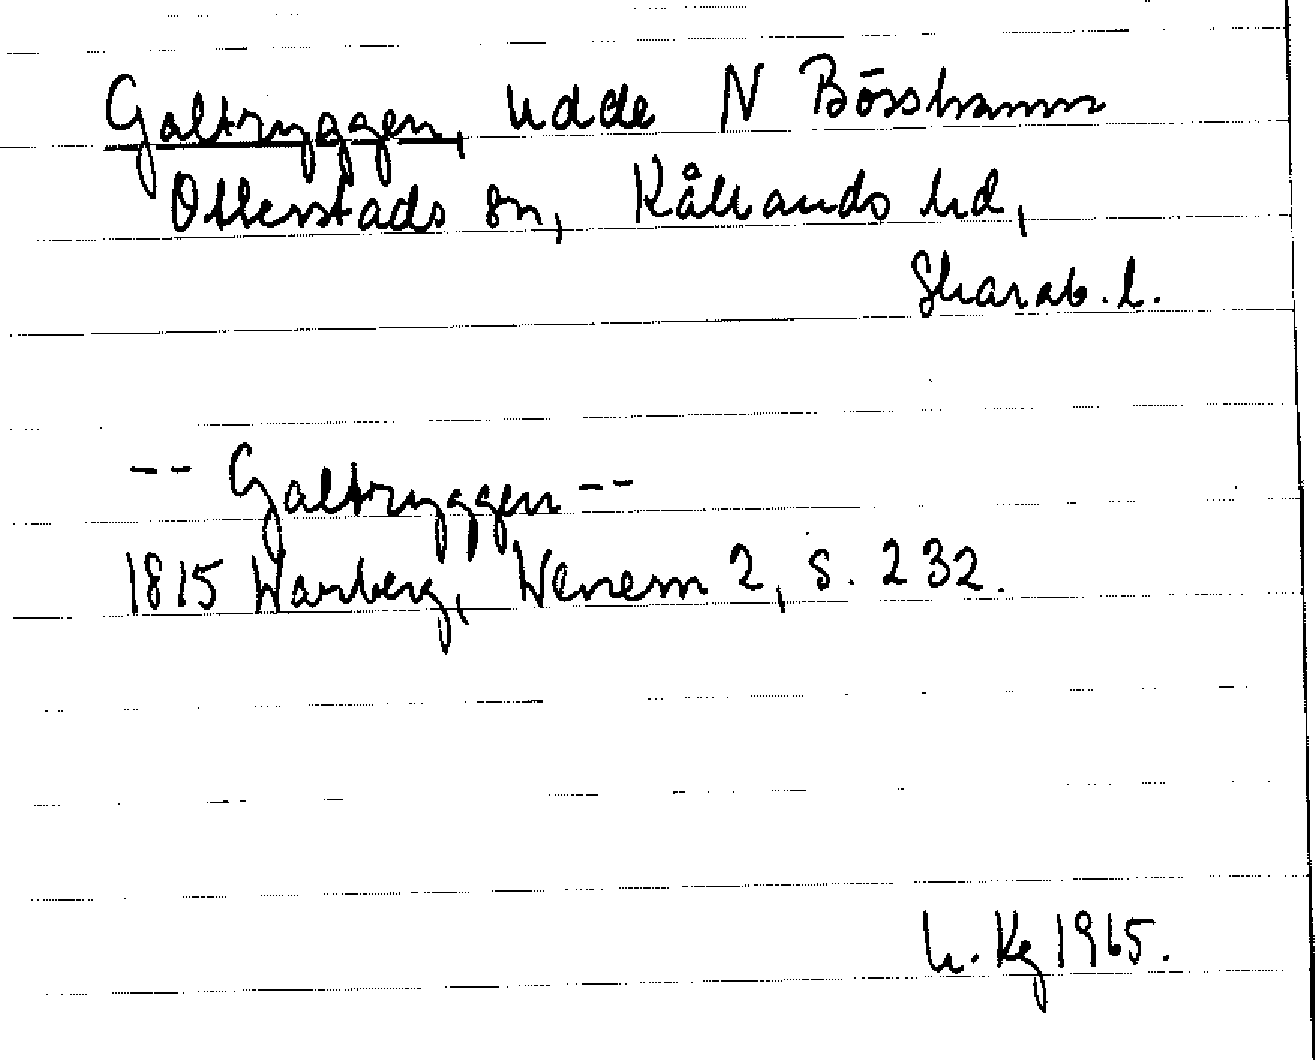 Galtryggen, udde N Bösshamn
Otterstads sn, Kållands hd,
Skarab. l.
-- Galtryggen --
1815 Warberg, Wenern 2, s. 232.
h. Kg 1965.